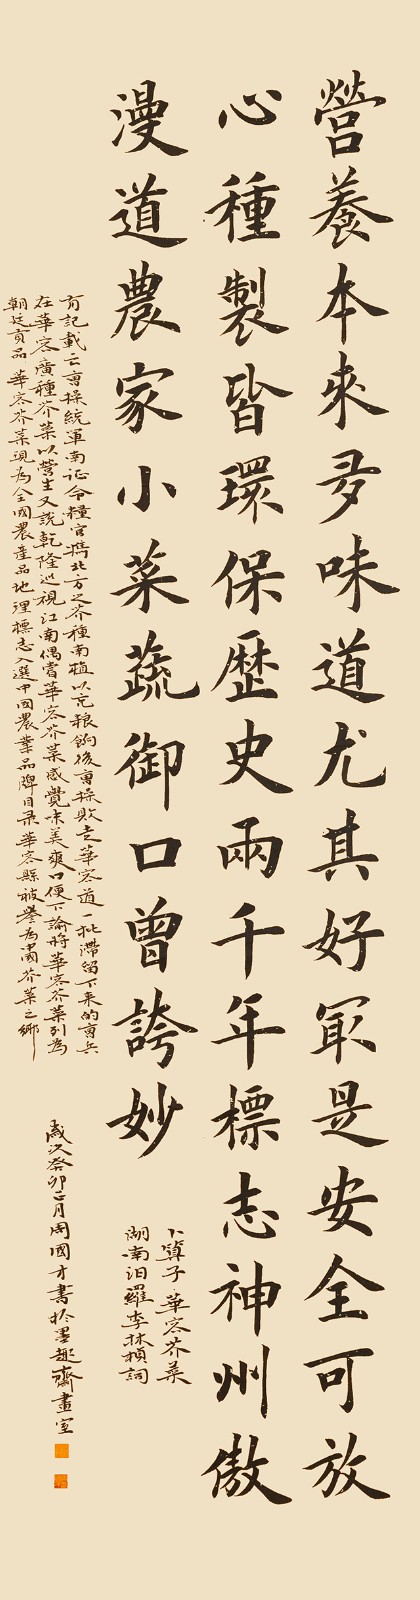 營養本來多味道尤其好最是安全可放
心種製皆環保歷史兩千年標志神州傲
漫道農家小菜蔬御口曾誇妙
卜算子·華容芥菜
湖南汨羅李林楨詞
有記載云曹操統軍南征令糧官携北方之芥種南植以充糧餉後曹操敗走華容道一批滯留下来的曹兵
在華容廣種芥菜以營生又説乾隆巡視江南偶嘗華容芥菜感覺味美爽口便下諭將華容芥菜列為
朝廷貢品 華容芥菜現為全國農產品地理標志入選中國農業品牌目录華容縣被譽為中國芥菜之鄉
歲次癸卯正月周國才書於墨趣齋畫室